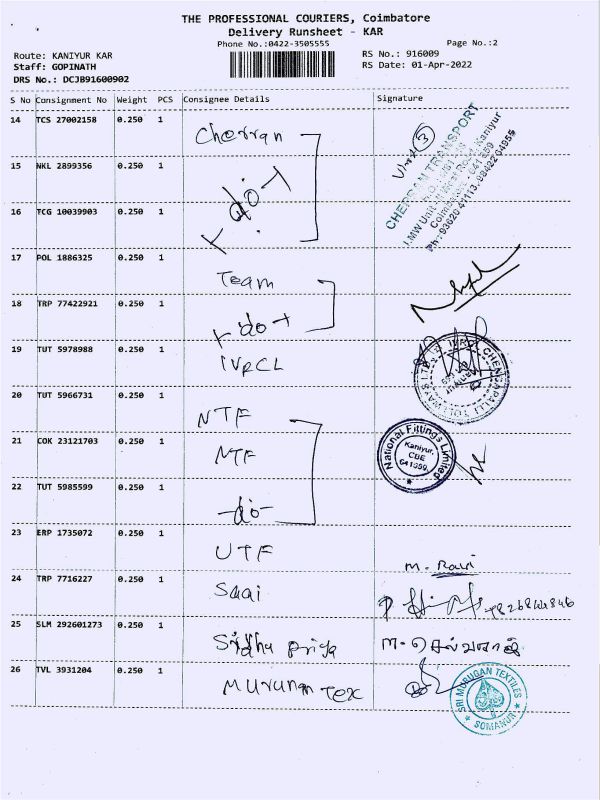 THE PROFESSIONAL COURIERS, Coimbatore
Delivery Runsheet - KAR
Phone No.:0422-3505555
Page No.:2
Route: KANIYUR KAR
RS No.: 916009
Staff: GOPINATH
RS Date: 01-Apr-2022
DRS No.: DCJB91600902
S No Consignment No Weight PCS Consignee Details Signature
14 TCS 27002158 0.250 1 Cherran
15 NKL 2899356 0.250 1 -do-
16 TCG 10039903 0.250 1
CHERRAN TRANSPORT
Coimbatore - 641 659
17 POL 1886325 0.250 1 Team
18 TRP 77422921 0.250 1 -do-
19 TUT 5978988 0.250 1 IVRCL
20 TUT 5966731 0.250 1 NTF
21 COK 23121703 0.250 1 NTF
National Fittings Limited
Kaniyur,
CBE
641659
22 TUT 5985599 0.250 1 -do-
23 ERP 1735072 0.250 1 UTF
M. Ravi
24 TRP 7716227 0.250 1 Saai
25 SLM 292601273 0.250 1 Sridhu Priya
26 TVL 3931204 0.250 1 Murugan Tex
SRI MURUGAN TEXTILES
SOMANUR